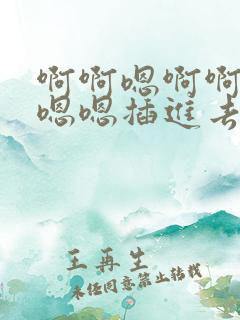 啊啊嗯啊啊
嗯嗯插进去
王再生
未经同意禁止转载